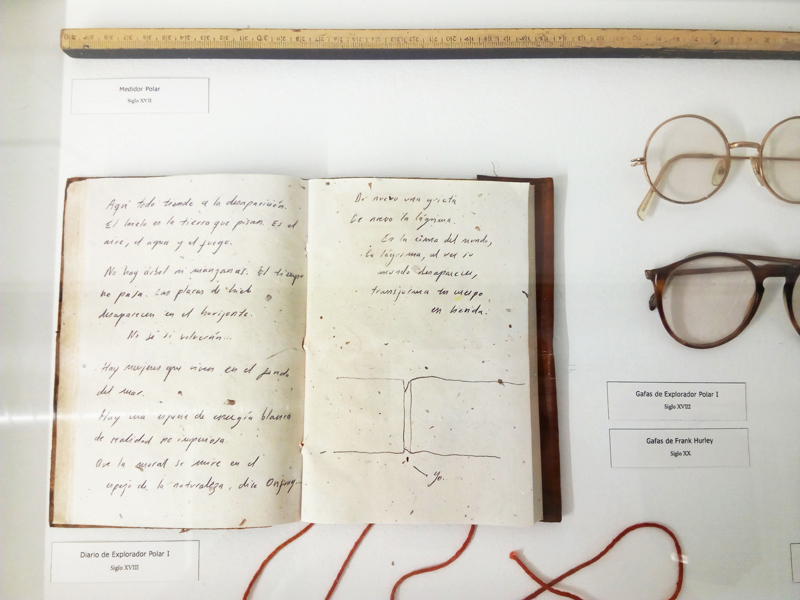 Medidor Polar
Siglo XVII
Aquí todo tiende a la desaparición.
El hielo es la tierra que pisan. Es el
aire, el agua y el fuego.
No hay árbol ni manzanas. El tiempo
no pasa. Las placas de hielo
desaparecen en el horizonte.
No sé si volverán...
Hay mujeres que viven en el fondo
del mar.
Hay una espuma de energía blanca
de realidad no imperiosa.
Que la moral se mire en el
espejo de la naturaleza, dice
De nuevo una grieta
De nuevo la lágrima.
Es la cima del mundo,
La lágrima, al ver su
mundo desaparecer,
transforma tu cuerpo
en herida.
yo.
Gafas de Explorador Polar I
Siglo XVIII
Gafas de Frank Hurley
Siglo XX
Diario de Explorador Polar I
Siglo XVIII